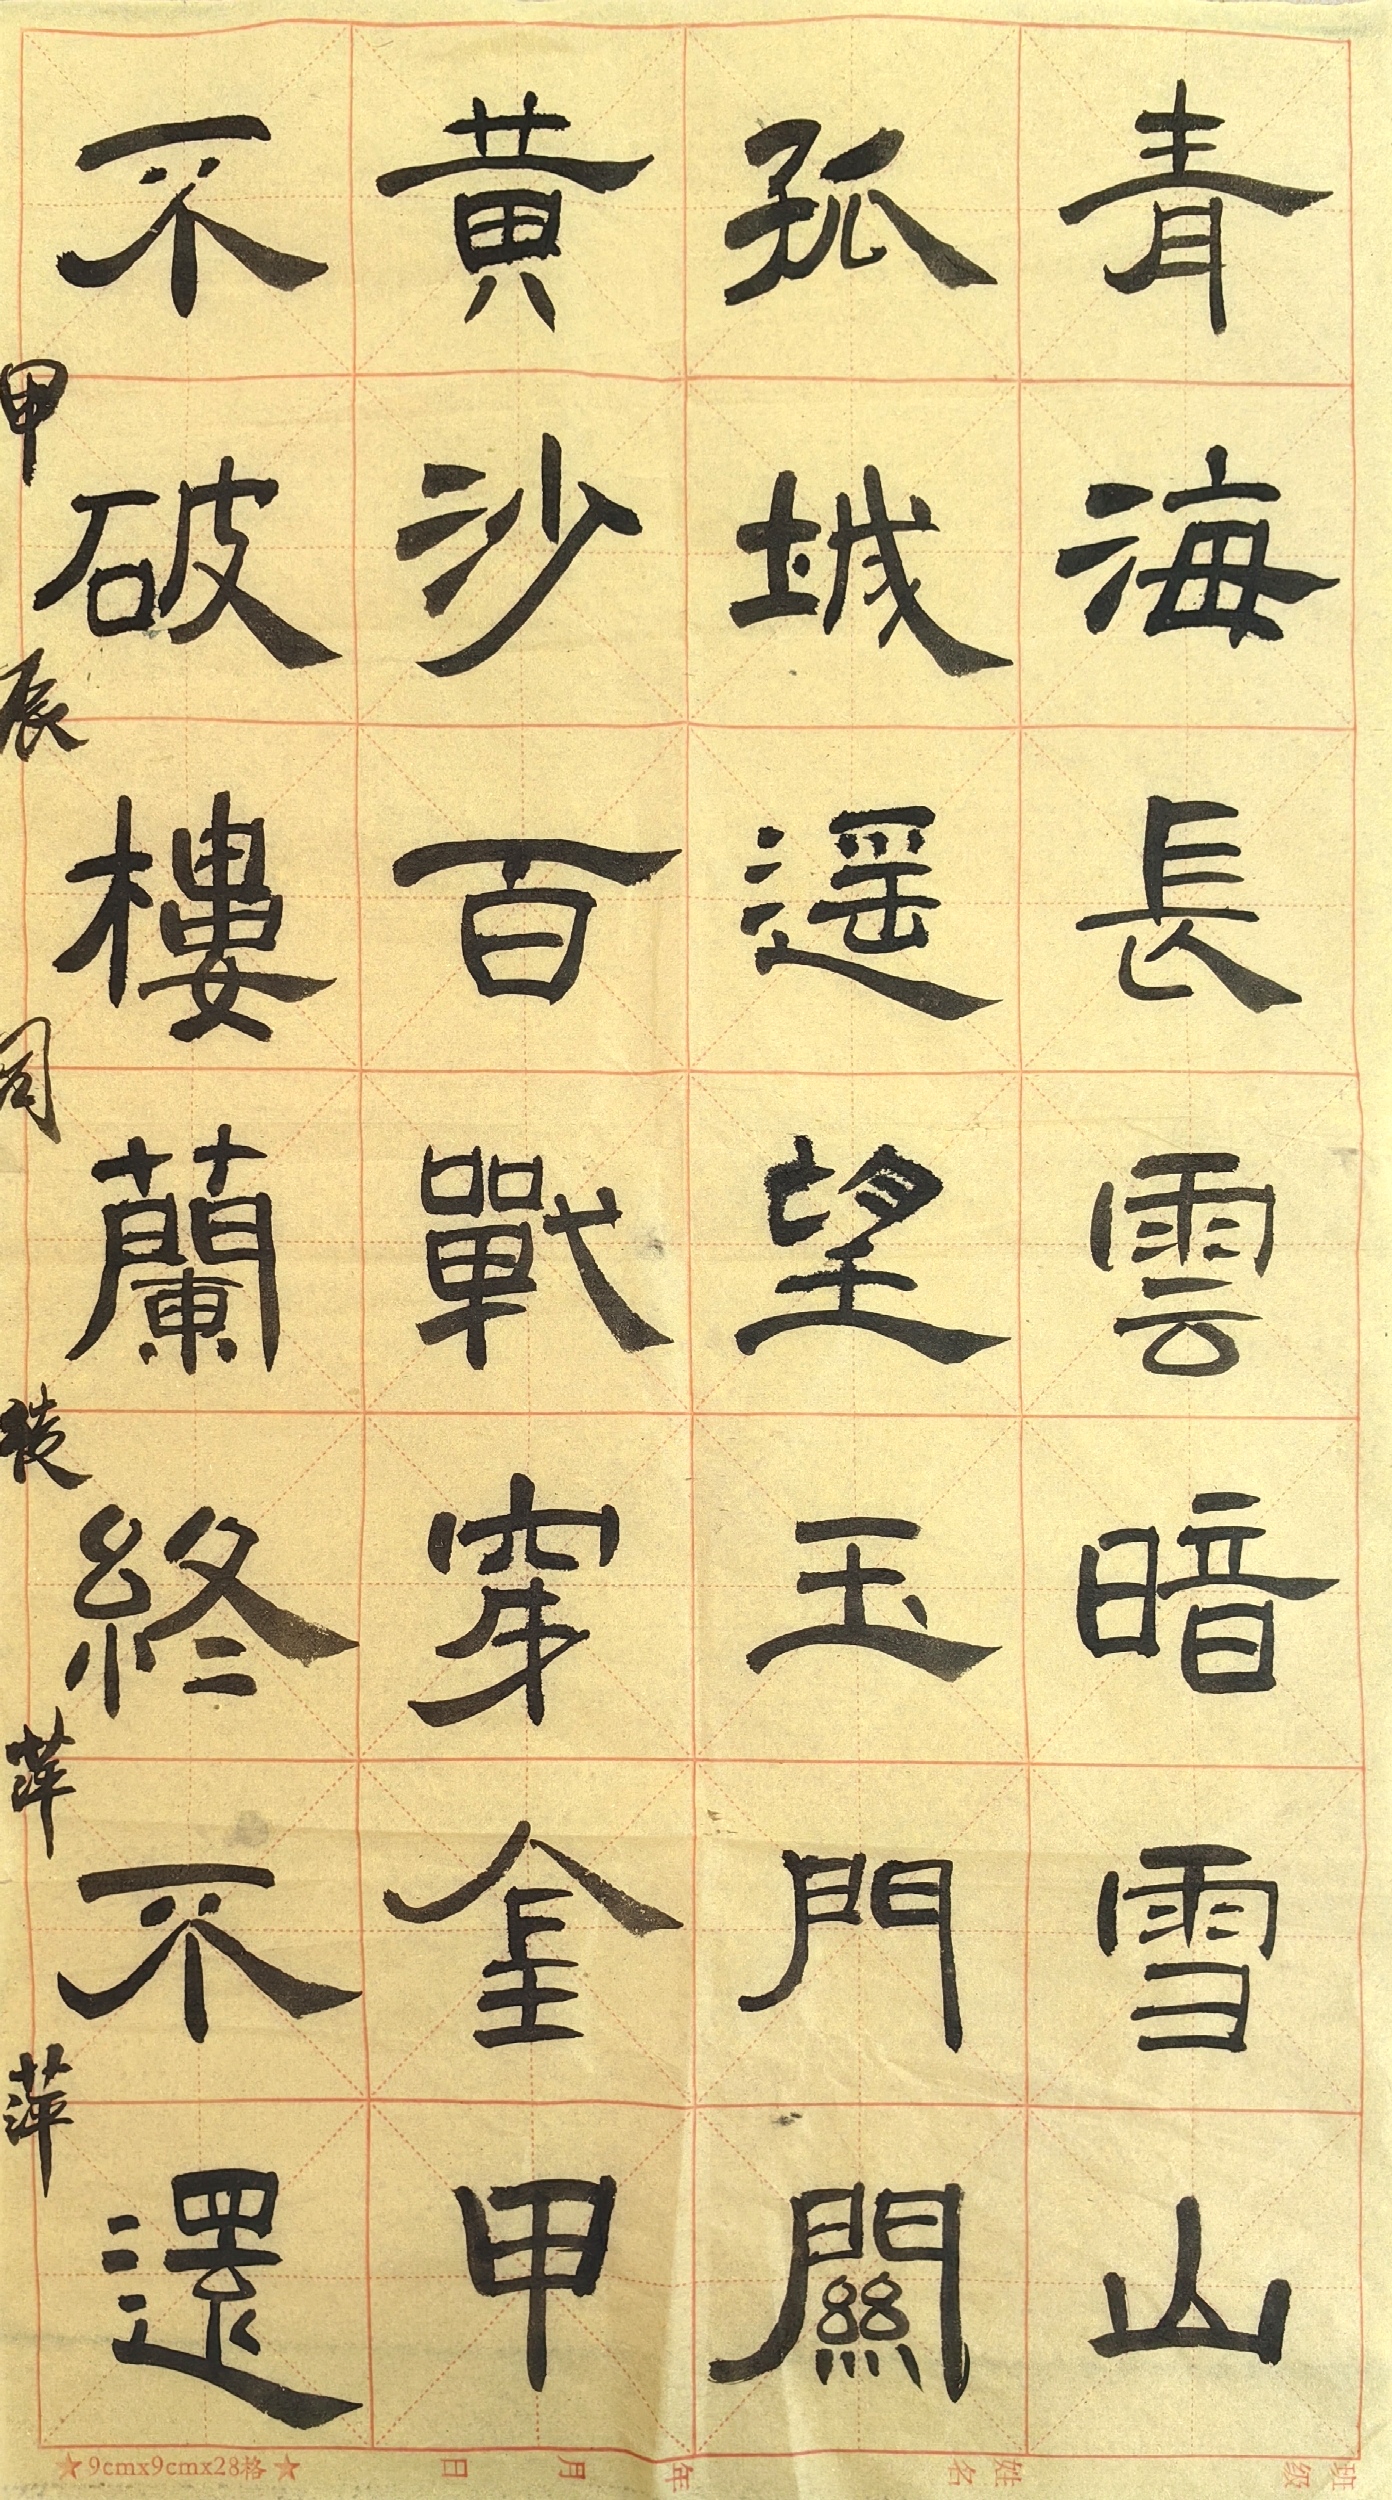 青海長雲暗雪山
孤城遥望玉門關
黄沙百戰穿金甲
不破樓蘭終不還
甲辰同 萍萍
★9cmx9cmx28格★ 日 月 年 姓名 班级